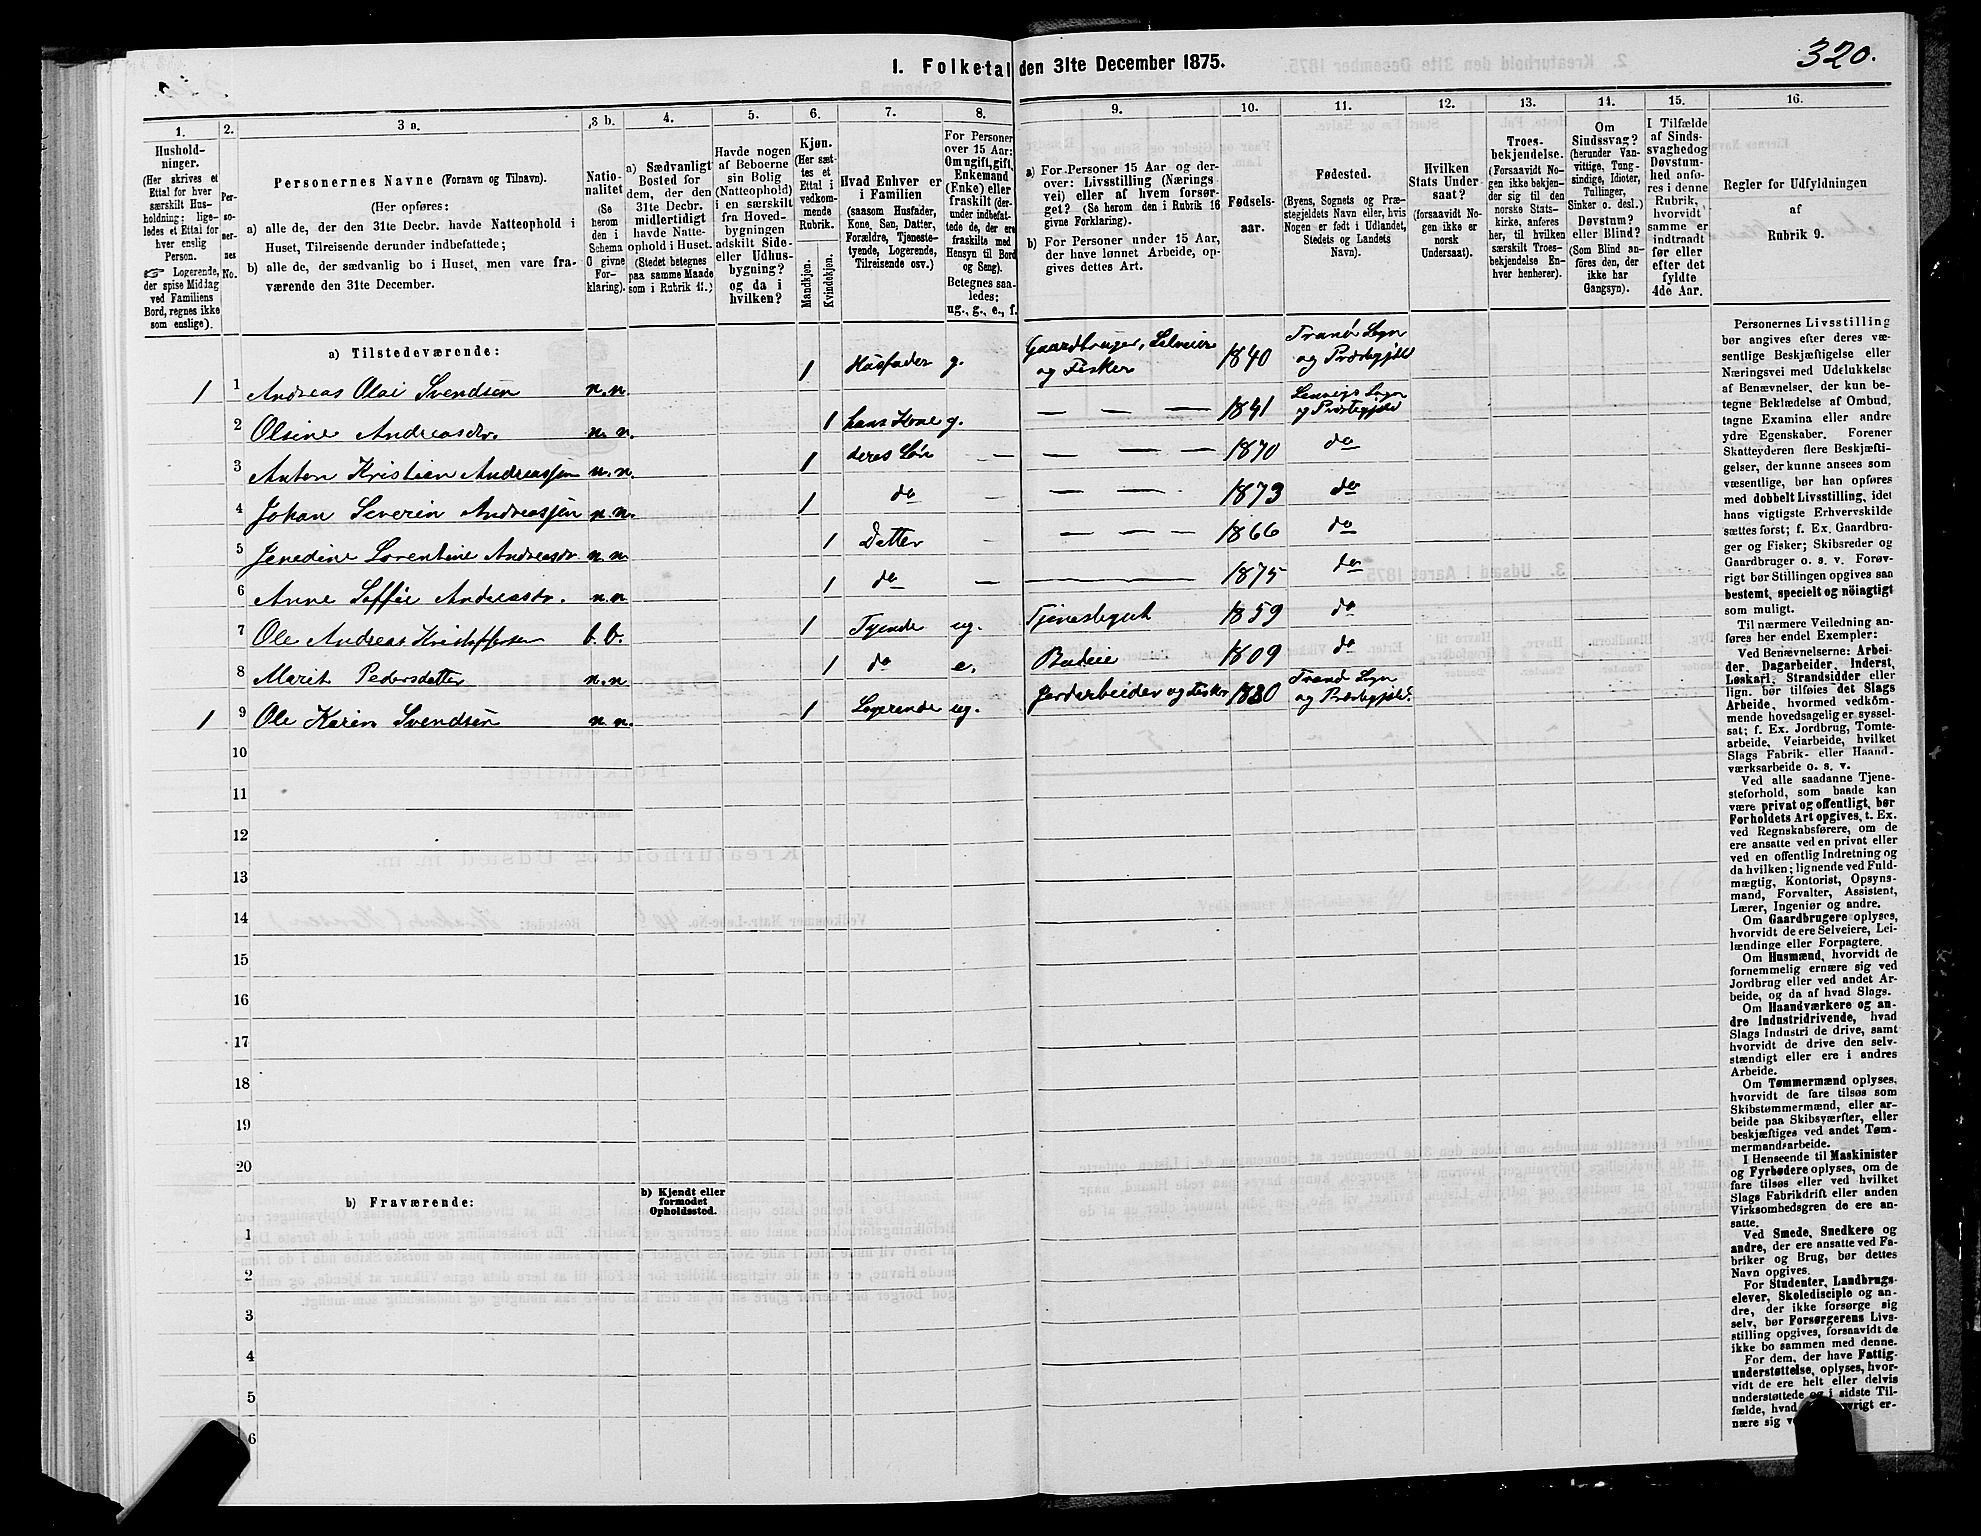 320.
1. Folketal den 31te December 1875.
1.
Hushold-
ninger.
(Her skrives et
Ettal for hver
særskilt Hus-
holdning; lige-
ledes et Ettal for
hver enslig
Person.
☞ Logerende,
der spise Middag
ved Familiens
Bord, regnes ikke
som enslige).
2.
Per-
so-
ner-
nes
No.
3 a.
Personernes Navne (Fornavn og Tilnavn).
(Her opføres:
a) alle de, der den 31te Decbr. havde Natteophold i
Huset, Tilreisende derunder indbefattede;
b) alle de, der sædvanlig bo i Huset, men vare fra-
værende den 31te December.
3 b.
Natio-
nalitet
(Se
herom
den i
Schema
O givne
For-
klaring).
4.
a) Sædvanligt
Bosted for
dem, der den
31te Decbr.
midlertidigt
havde Natte-
ophold i Huset.
(Stedet betegnes
paa samme Maade
som i Rubrik 11.)
5.
Havde nogen
af Beboerne
sin Bolig
(Natteophold)
i en særskilt
fra Hoved-
bygningen
adskilt Side-
eller Udhus-
bygning?
og da i
hvilken?
6.
Kjøn.
(Her sæt-
tes et
Ettal i
vedkom-
mende
Rubrik.
Mandkjøn.
Kvindekjøn.
7.
Hvad Enhver er
i Familien
(saasom Husfader,
Kone, Søn, Datter,
Forældre, Tjeneste-
tyende, Logerende,
Tilreisende osv.)
8.
For Personer
over 15 Aar:
Om ugift, gift,
Enkemand
(Enke) eller
fraskilt (der-
under indbefat-
tede de, der ere
fraskilte med
Hensyn til Bord
og Seng).
Betegnes saa-
ledes:
ug., g., e., f.
9.
a) For Personer 15 Aar og der-
over: Livsstilling (Nærings
vei) eller af hvem forsør-
get? (Se herom den i Rubrik 16
givne Forklaring).
b) For Personer under 15 Aar,
der have lønnet Arbeide, op-
gives dettes Art.
10.
Fødsels-
aar.
11.
Fødested.
(Byens, Sognets og Præ-
stegjeldets Navn eller, hvis
Nogen er født i Udlandet,
Stedets og Landets
Navn).
12.
Hvilken
Stats Under
saat?
(forsaavidt No-
gen ikke er
norsk
Undersaat).
13.
Troes-
bekjendelse.
(Forsaavidt No-
gen ikke bekjen-
der sig til den
norske Stats-
kirke, anføres
her, til hvilken
særskilt Troes-
bekjendelse En-
hver henhører).
14.
Om
Sindssvag?
(herunder Van-
vittige, Tung-
sindige, Idioter,
Tullinger,
Sinker o. desl.)
Døvstum?
eller Blind?
(Som Blind an-
føres den, der
ikke har
Gangsyn).
15.
I Tilfælde
af Sinds-
svaghed og
Døvstum-
hed anfø-
res i denne
Rubrik,
hvorvidt
samme er
indtraadt
før eller
efter det
fyldte
4de Aar.
16.
Regler for Udfyldningen
af
Rubrik 9.
a) Tilstedeværende:
1 1 Andreas Olai Svendsen n.n. 1 Husfader g. Gaardbruger, Selveier og Fisker 1840 Tranø Sogn og Præstegjeld
2 Olsine Andreasdr. n.n. 1 hans Kone g. — — — 1841 Lenvigs Sogn og Præstegjeld
3 Anton Kristian Andreassen n.n. 1 deres Søn — — — — 1870 do
4 Johan Severin Andreassen n.n. 1 do — — — — 1873 do
5 Jenedine Lorentine Andreasdr n.n. 1 Datter — — — — 1866 do
6 Anne Soffie Andreasdr. n.n. 1 do — — — — 1875 do
7 Ole Andreas Kristoffersen b.b. 1 Tyende ug. Tjenestegut 1859 do
8 Marit Pedersdatter n.n. 1 do e. Budeie 1809 do
1 9 Ole Karin Svendsen n.n. 1 Logerende ug. Jordarbeider og Fisker 1830 Tranø Sogn og Præstegjeld.
10
11
12
13
14
15
16
17
18
19
20
b) Fraværende:
b) Kjendt eller
formodet
Opholdssted.
1
2
3
4
5
6
Personernes Livsstilling
bør angives efter deres væ-
sentlige Beskjæftigelse eller
Næringsvei med Udelukkelse
af Benævnelser, der kun be-
tegne Beklædelse af Ombud,
tagne Examina eller andre
ydre Egenskaber. Forener
Skatteyderen flere Beskjæfti-
gelser, der kunne ansees som
væsentlige, bør han opføres
med dobbelt Livsstilling, idet
hans vigtigste Erhvervskilde
sættes først; f. Ex. Gaardbru-
ger og Fisker; Skibsreder og
Gaardbruger o. s. v. Forøv-
rigt bør Stillingen opgives saa
bestemt, specielt og nöiagtigt
som muligt.
Til nærmere Veiledning an-
føres her endel Exempler:
Ved Benævnelserne: Arbei-
der, Dagarbeider, Inderst,
Løskarl, Strandsidder eller
lign. bør tilføies det Slags
Arbeide, hvormed vedkom-
mende hovedsagelig er syssel-
sat; f. Ex. Jordbrug, Tomte-
arbeide, Veiarbeide, hvilket
Slags Fabrik- eller Haand-
værksarbeide o. s. v.
Ved alle saadanne Tjene-
steforhold, som baade kan
være privat og offentligt, bør
Forholdets Art opgives, t. Ex.
ved Regnskabsførere, om de
ere ansatte ved en privat eller
ved en offentlig Indretning og
da hvilken; lignende ved Fuld-
mægtig, Kontorist, Opsyns-
mand, Forvalter, Assistent,
Lærer, Ingeniør og andre.
Om Gaardbrugere oplyses,
hvorvidt de ere Selveiere, Lei-
lændinge eller Forpagtere.
Om Husmænd, hvorvidt de
fornemmelig ernære sig ved
Jordbrug eller ved andet Ar-
beide, og da af hvad Slags.
Om Haandværkere og an-
dre Industridrivende, hvad
Slags Industri de drive, samt
hvorvidt de drive den selv-
stændigt eller ere i andres
Arbeide.
Om Tømmermænd oplyses,
hvorvidt de fare tilsøs som
Skibstømmermænd, eller ar-
beide paa Skibsværfter, eller
beskjæftiges ved andet Tøm-
mermandsarbeide.
I Henseende til Maskinister
og Fyrbødere oplyses, om de
fare tilsøs eller ved hvilket
Slags Fabrikdrift eller anden
Virksomhedsgren de ere an-
satte.
Ved Smede, Snedkere og
andre, der ere ansatte ved Fa-
briker og Brug, bør dettes
Navn opgives.
For Studenter, Landbrugs-
elever, Skoledisciple og an-
dre, der ikke forsørge sig
selv, bør Forsørgerens Livs-
stilling opgives, forsaavidt de
ikke bo sammen med denne.
For dem, der have Fattig-
understøttelse, oplyses, hvor-
vidt de ere helt eller delvis
understøttede og i sidste Til-
fælde, hvad de øvrigt er-
nære sig